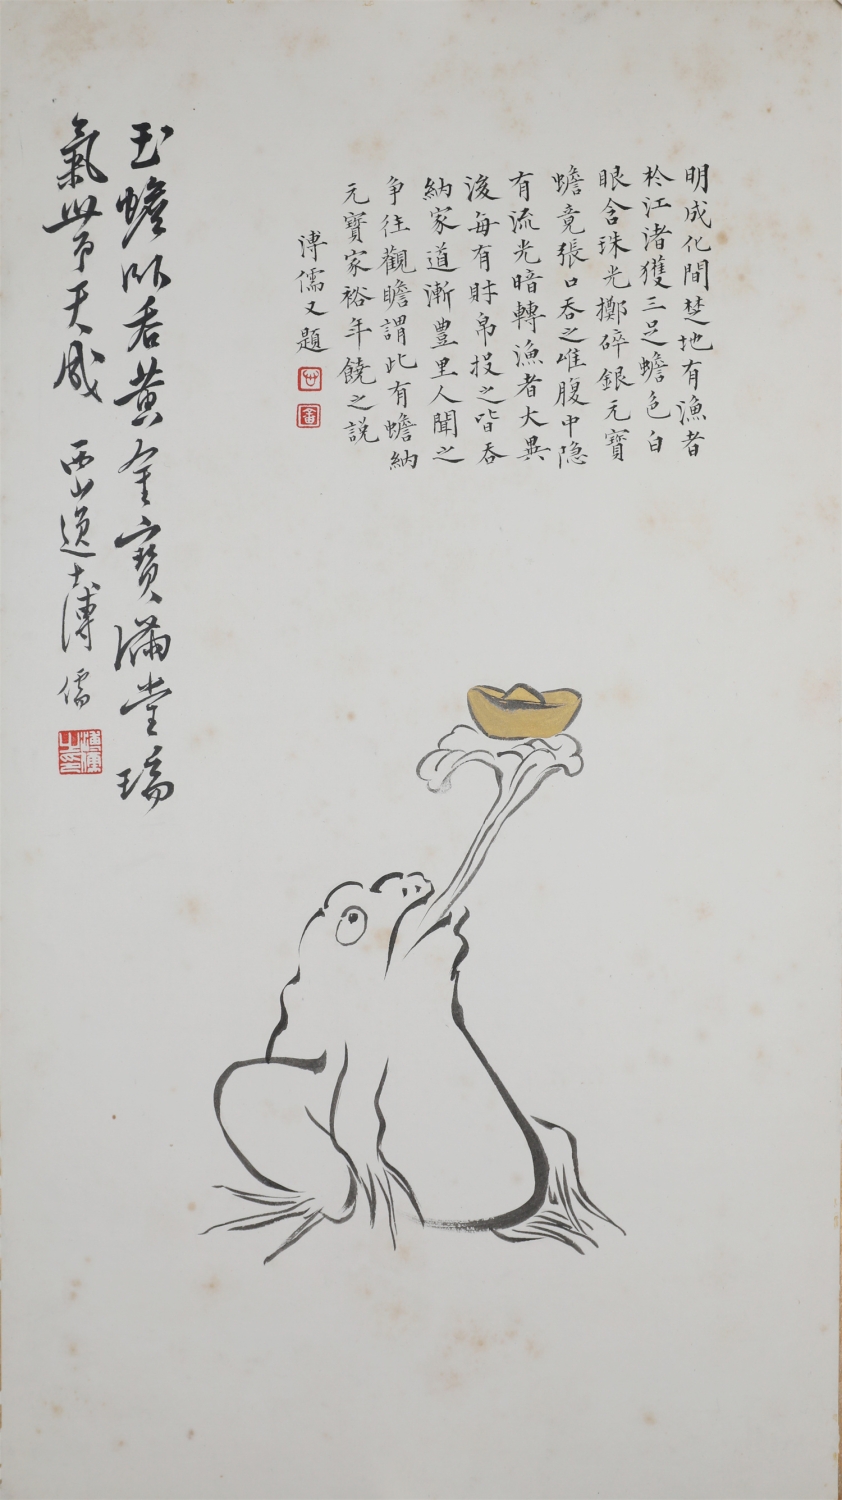 明成化間楚地有漁者
於江渚獲三足蟾色白
眼含珠光擲碎銀元寶
蟾竟張口吞之唯腹中隐
有流光暗轉漁者大異
後每有財帛投之皆吞
納家道漸豊里人聞之
争往觀瞻謂此有蟾納
元寶家裕年饒之説
溥儒又題
玉蟾吞黄金寳滿堂瑞
氣帶天成
西山逸士溥儒